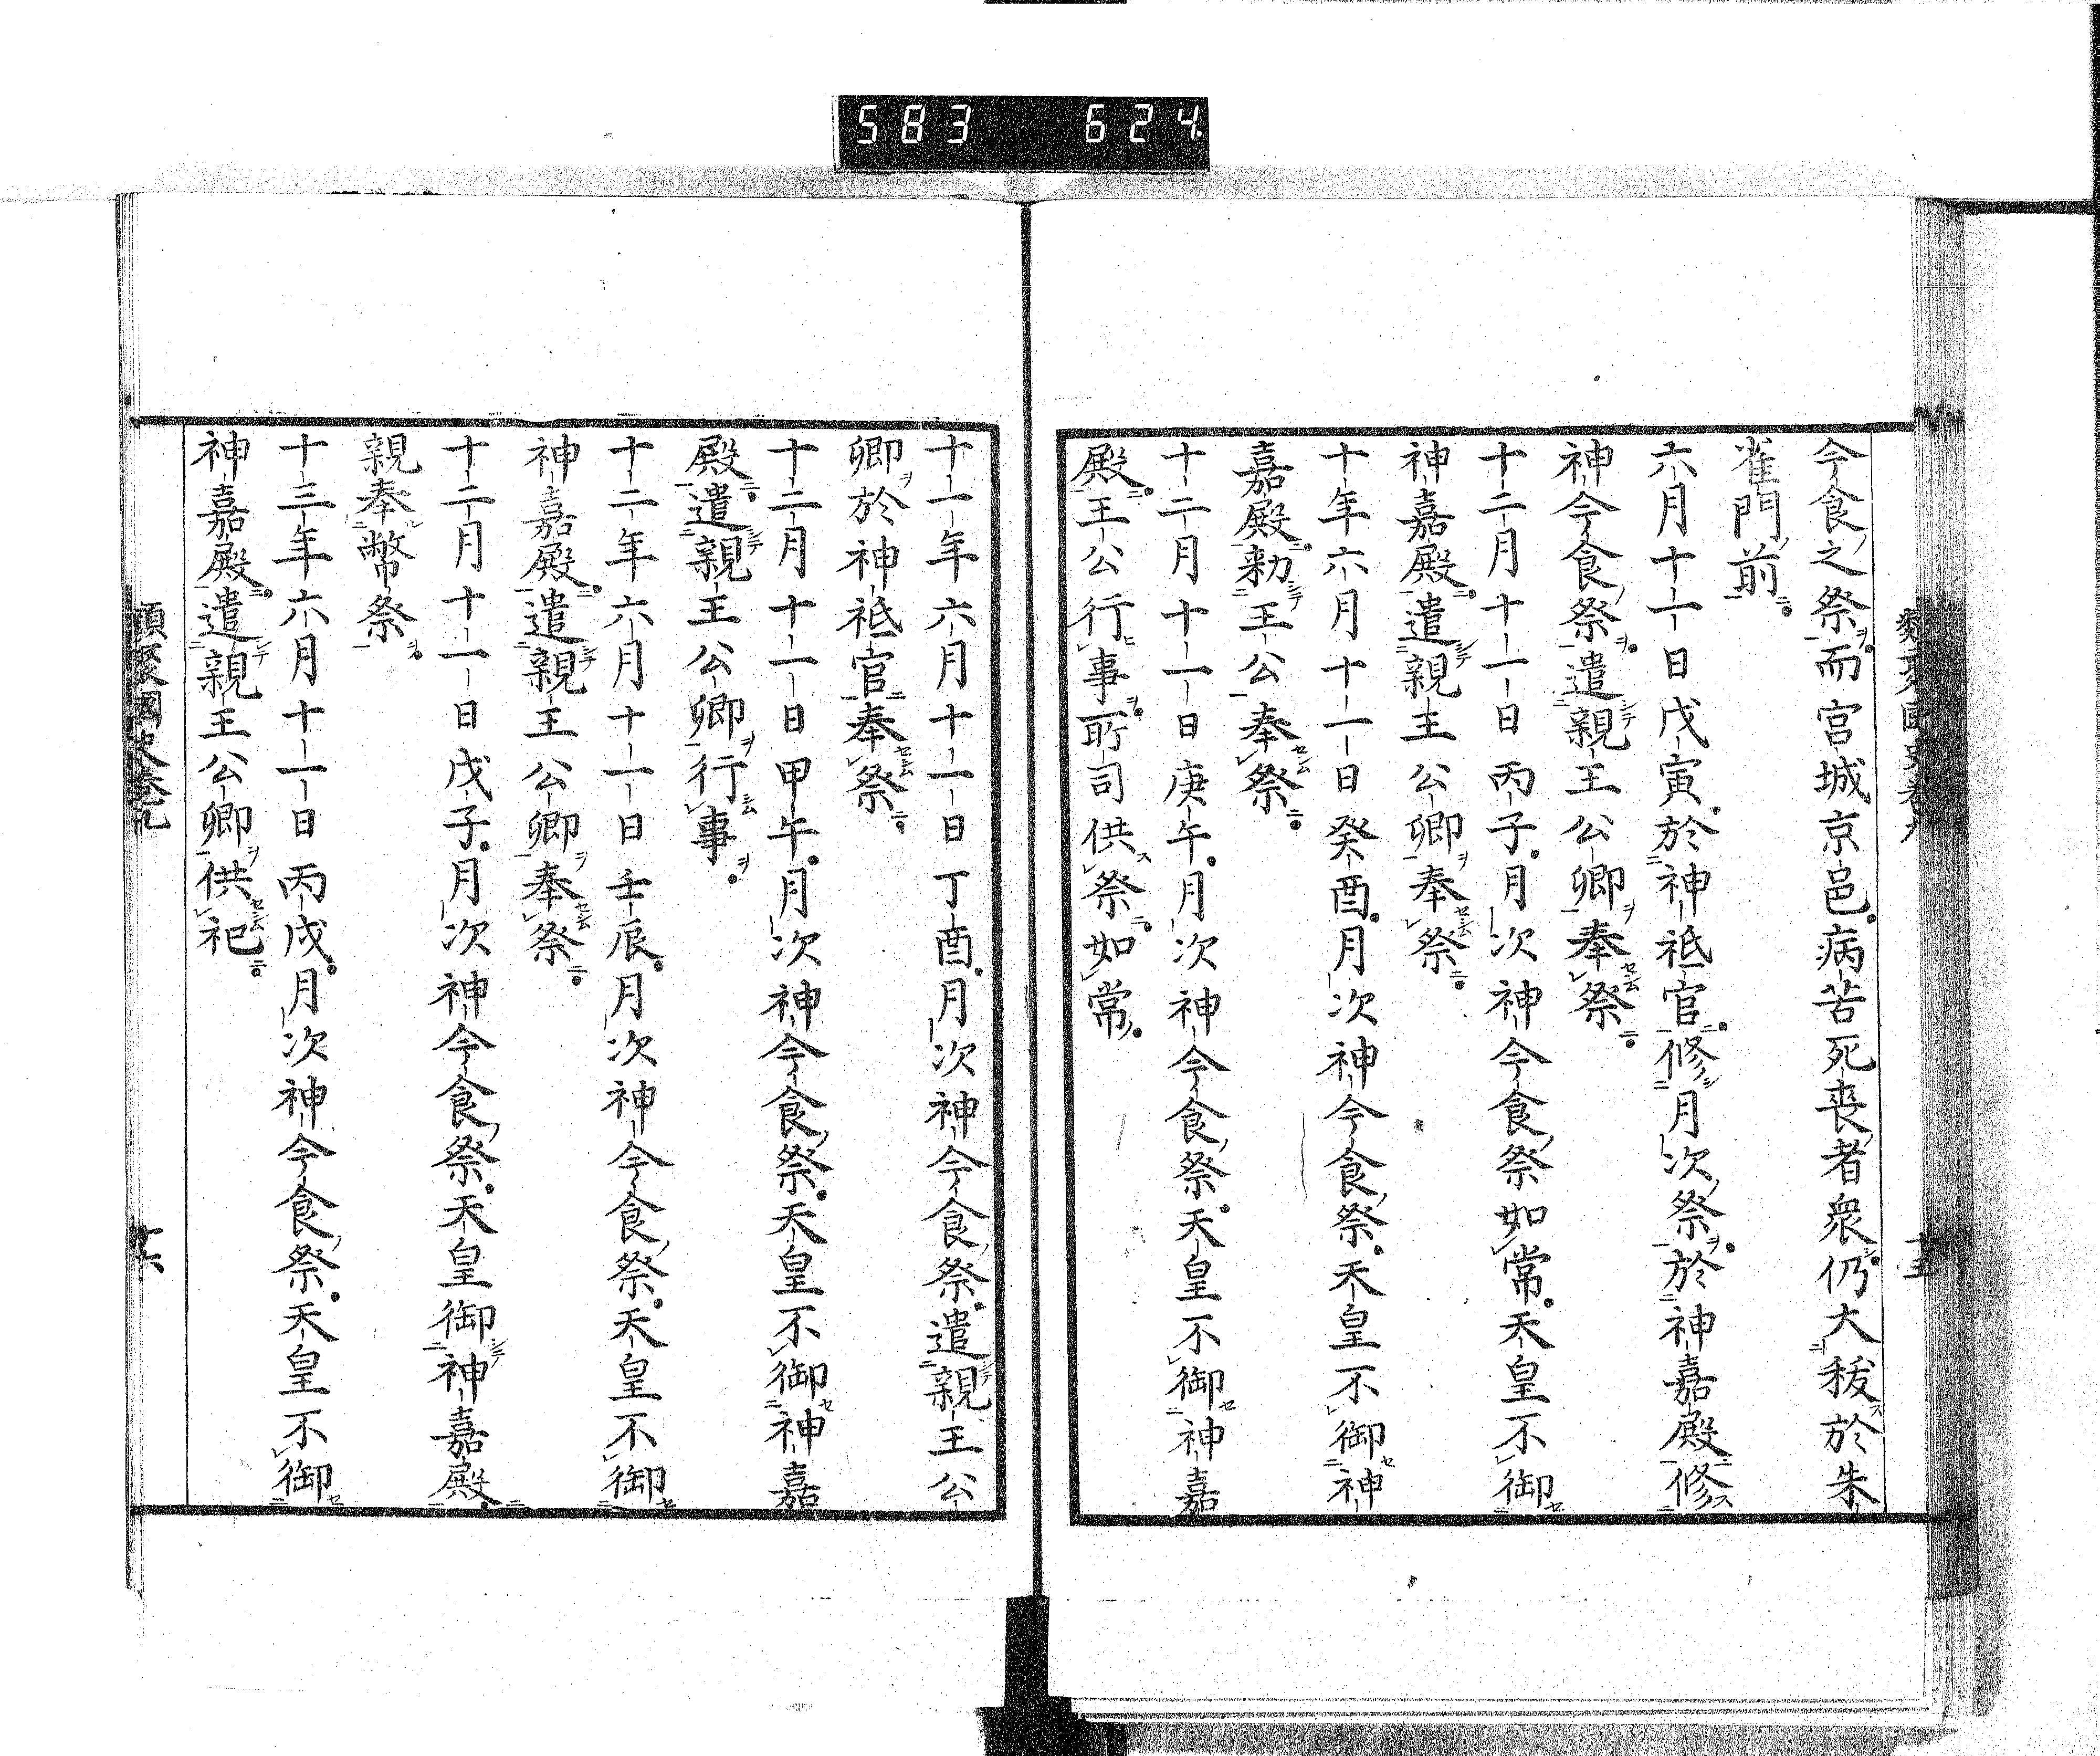 583 624
今食之祭而宮城京邑病苦死喪者衆仍大秡於朱
雀門前
六月十一日戊寅於神祇官修月次祭於神嘉殿修
神今食祭遣親王公卿奉祭
十二月十一日丙子月次神今食祭如常天皇不御
神嘉殿遣親王公卿奉祭
十年六月十一日癸酉月次神今食祭天皇不御神
嘉殿勑王公奉祭
十二月十一日庚午月次神今食祭天皇不御神嘉
殿王公行事所司供祭如常
十一年六月十一日丁酉月次神今食祭遣親王公
卿於神祇官奉祭
十二月十一日甲午月次神今食祭天皇不御神嘉
殿遣親王公卿行事
十二年六月十一日壬辰月次神今食祭天皇不御
神嘉殿遣親王公卿奉祭
十二月十一日戊子月次神今食祭天皇御神嘉殿
親奉幣祭
十三年六月十一日丙戌月次神今食祭天皇不御
神嘉殿遣親王公卿供祀
類聚國史卷九
十六